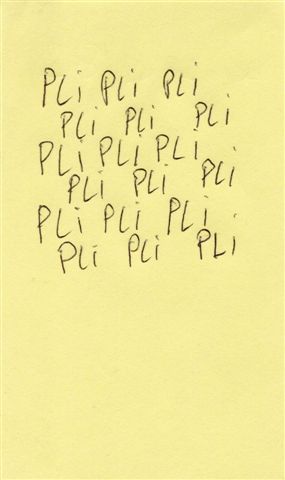 PLi PLi PLi
PLi PLi PLi
PLi PLi PLi
PLi PLi PLi
PLi PLi PLi
PLi PLi PLi